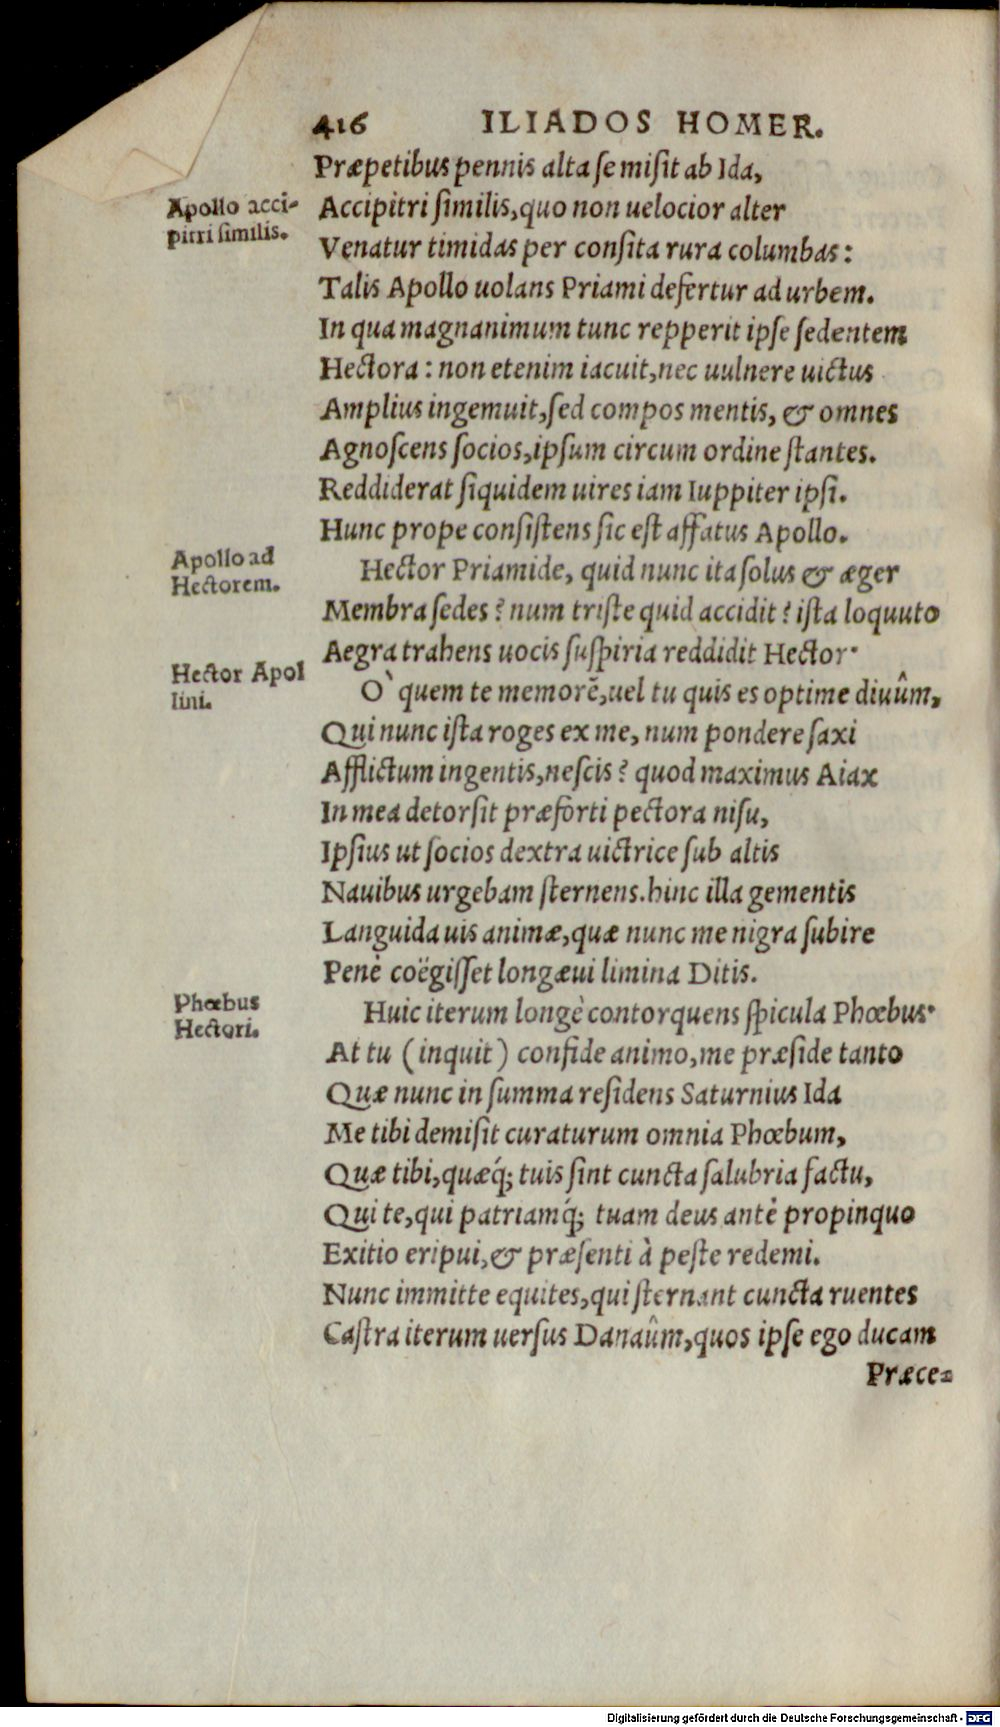 416 ILIADOS HOMER.
Præpetibus pennis alta se misit ab Ida,
Apollo acci-
pitri similis.
Accipitri similis, quo non uelocior alter
Venatur timidas per consita rura columbas:
Talis Apollo uolans Priami defertur ad urbem.
In qua magnanimum tunc repperit ipse sedentem
Hectora: non etenim iacuit, nec uulnere uictus
Amplius ingemuit, sed compos mentis, & omnes
Agnoscens socios, ipsum circum ordine stantes.
Reddiderat siquidem uires iam Iuppiter ipsi.
Hunc prope consistens sic est affatus Apollo.
Apollo ad
Hectorem.
Hector Priamide, quid nunc ita solus & æger
Membra sedes? num triste quid accidit? ista loquuto
Aegra trahens uocis suspiria reddidit Hector.
Hector Apol
lini.
O` quem te memorē, uel tu quis es optime diuûm,
Qui nunc ista roges ex me, num pondere saxi
Afflictum ingentis, nescis? quod maximus Aiax
In mea detorsit præforti pectora nisu,
Ipsius ut socios dextra uictrice sub altis
Nauibus urgebam sternens. hinc illa gementis
Languida uis animæ, quæ nunc me nigra subire
Penè coëgisset longæui limina Ditis.
Phœbus
Hectori.
Huic iterum longè contorquens spicula Phœbus.
At tu (inquit) confide animo, me præside tanto
Quæ nunc in summa residens Saturnius Ida
Me tibi demisit curaturum omnia Phœbum,
Quæ tibi, quæq́; tuis sint cuncta salubria factu,
Qui te, qui patriamq́; tuam deus antè propinquo
Exitio eripui, & præsenti à peste redemi.
Nunc immitte equites, qui sternant cuncta ruentes
Castra iterum uersus Danaûm, quos ipse ego ducam
Præce-
Digitalisierung gefördert durch die Deutsche Forschungsgemeinschaft - DFG